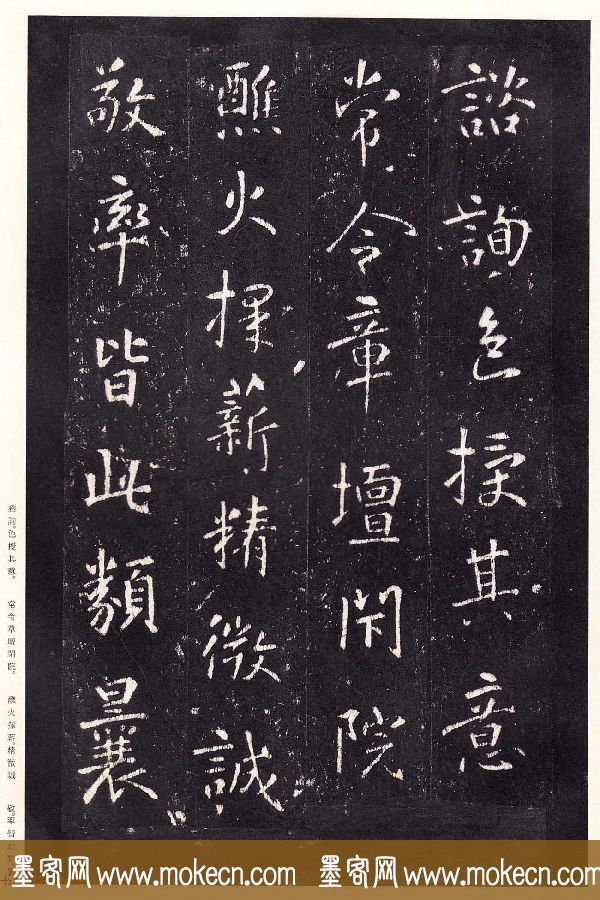 諮詢色授其意
常令章壇閇院
醮火採薪精微誠
敬率皆此類曩
諮詢。色授其意。 常令章壇閉院。 醮火採薪。精微誠 敬。率皆此
墨客网 www.mokecn.com 墨客网 www.mokecn.com